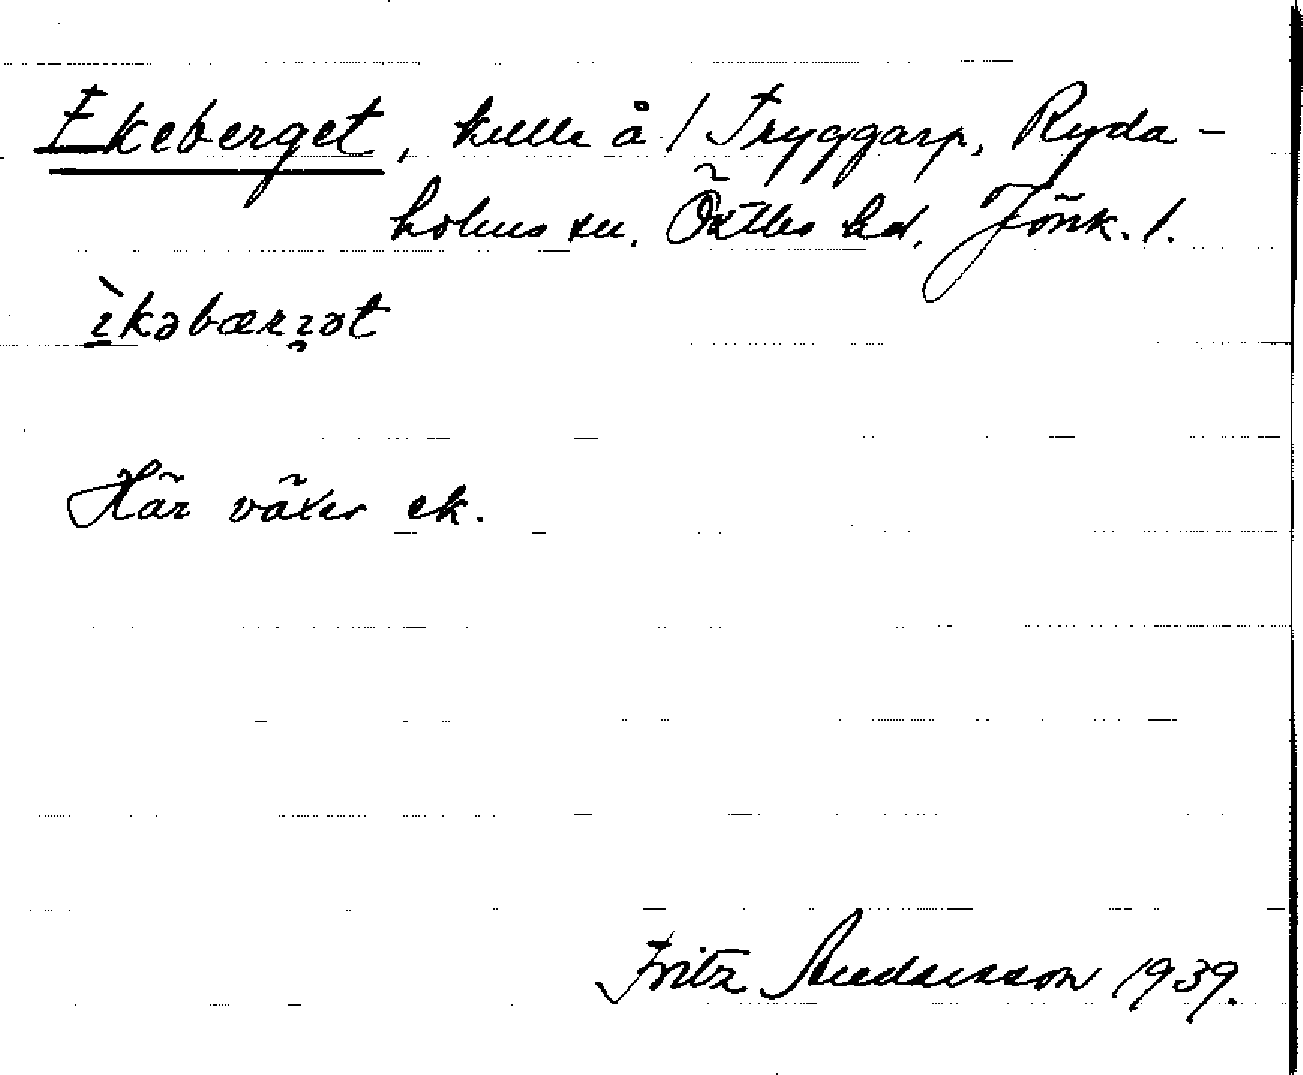 Ekeberget, kulle å / Tryggarp, Ryda-
holms sn. Östbo hd. Jönk. l.
ìkəbærɪ̯ət
Här växer ek.
Fritz Andersson 1939.